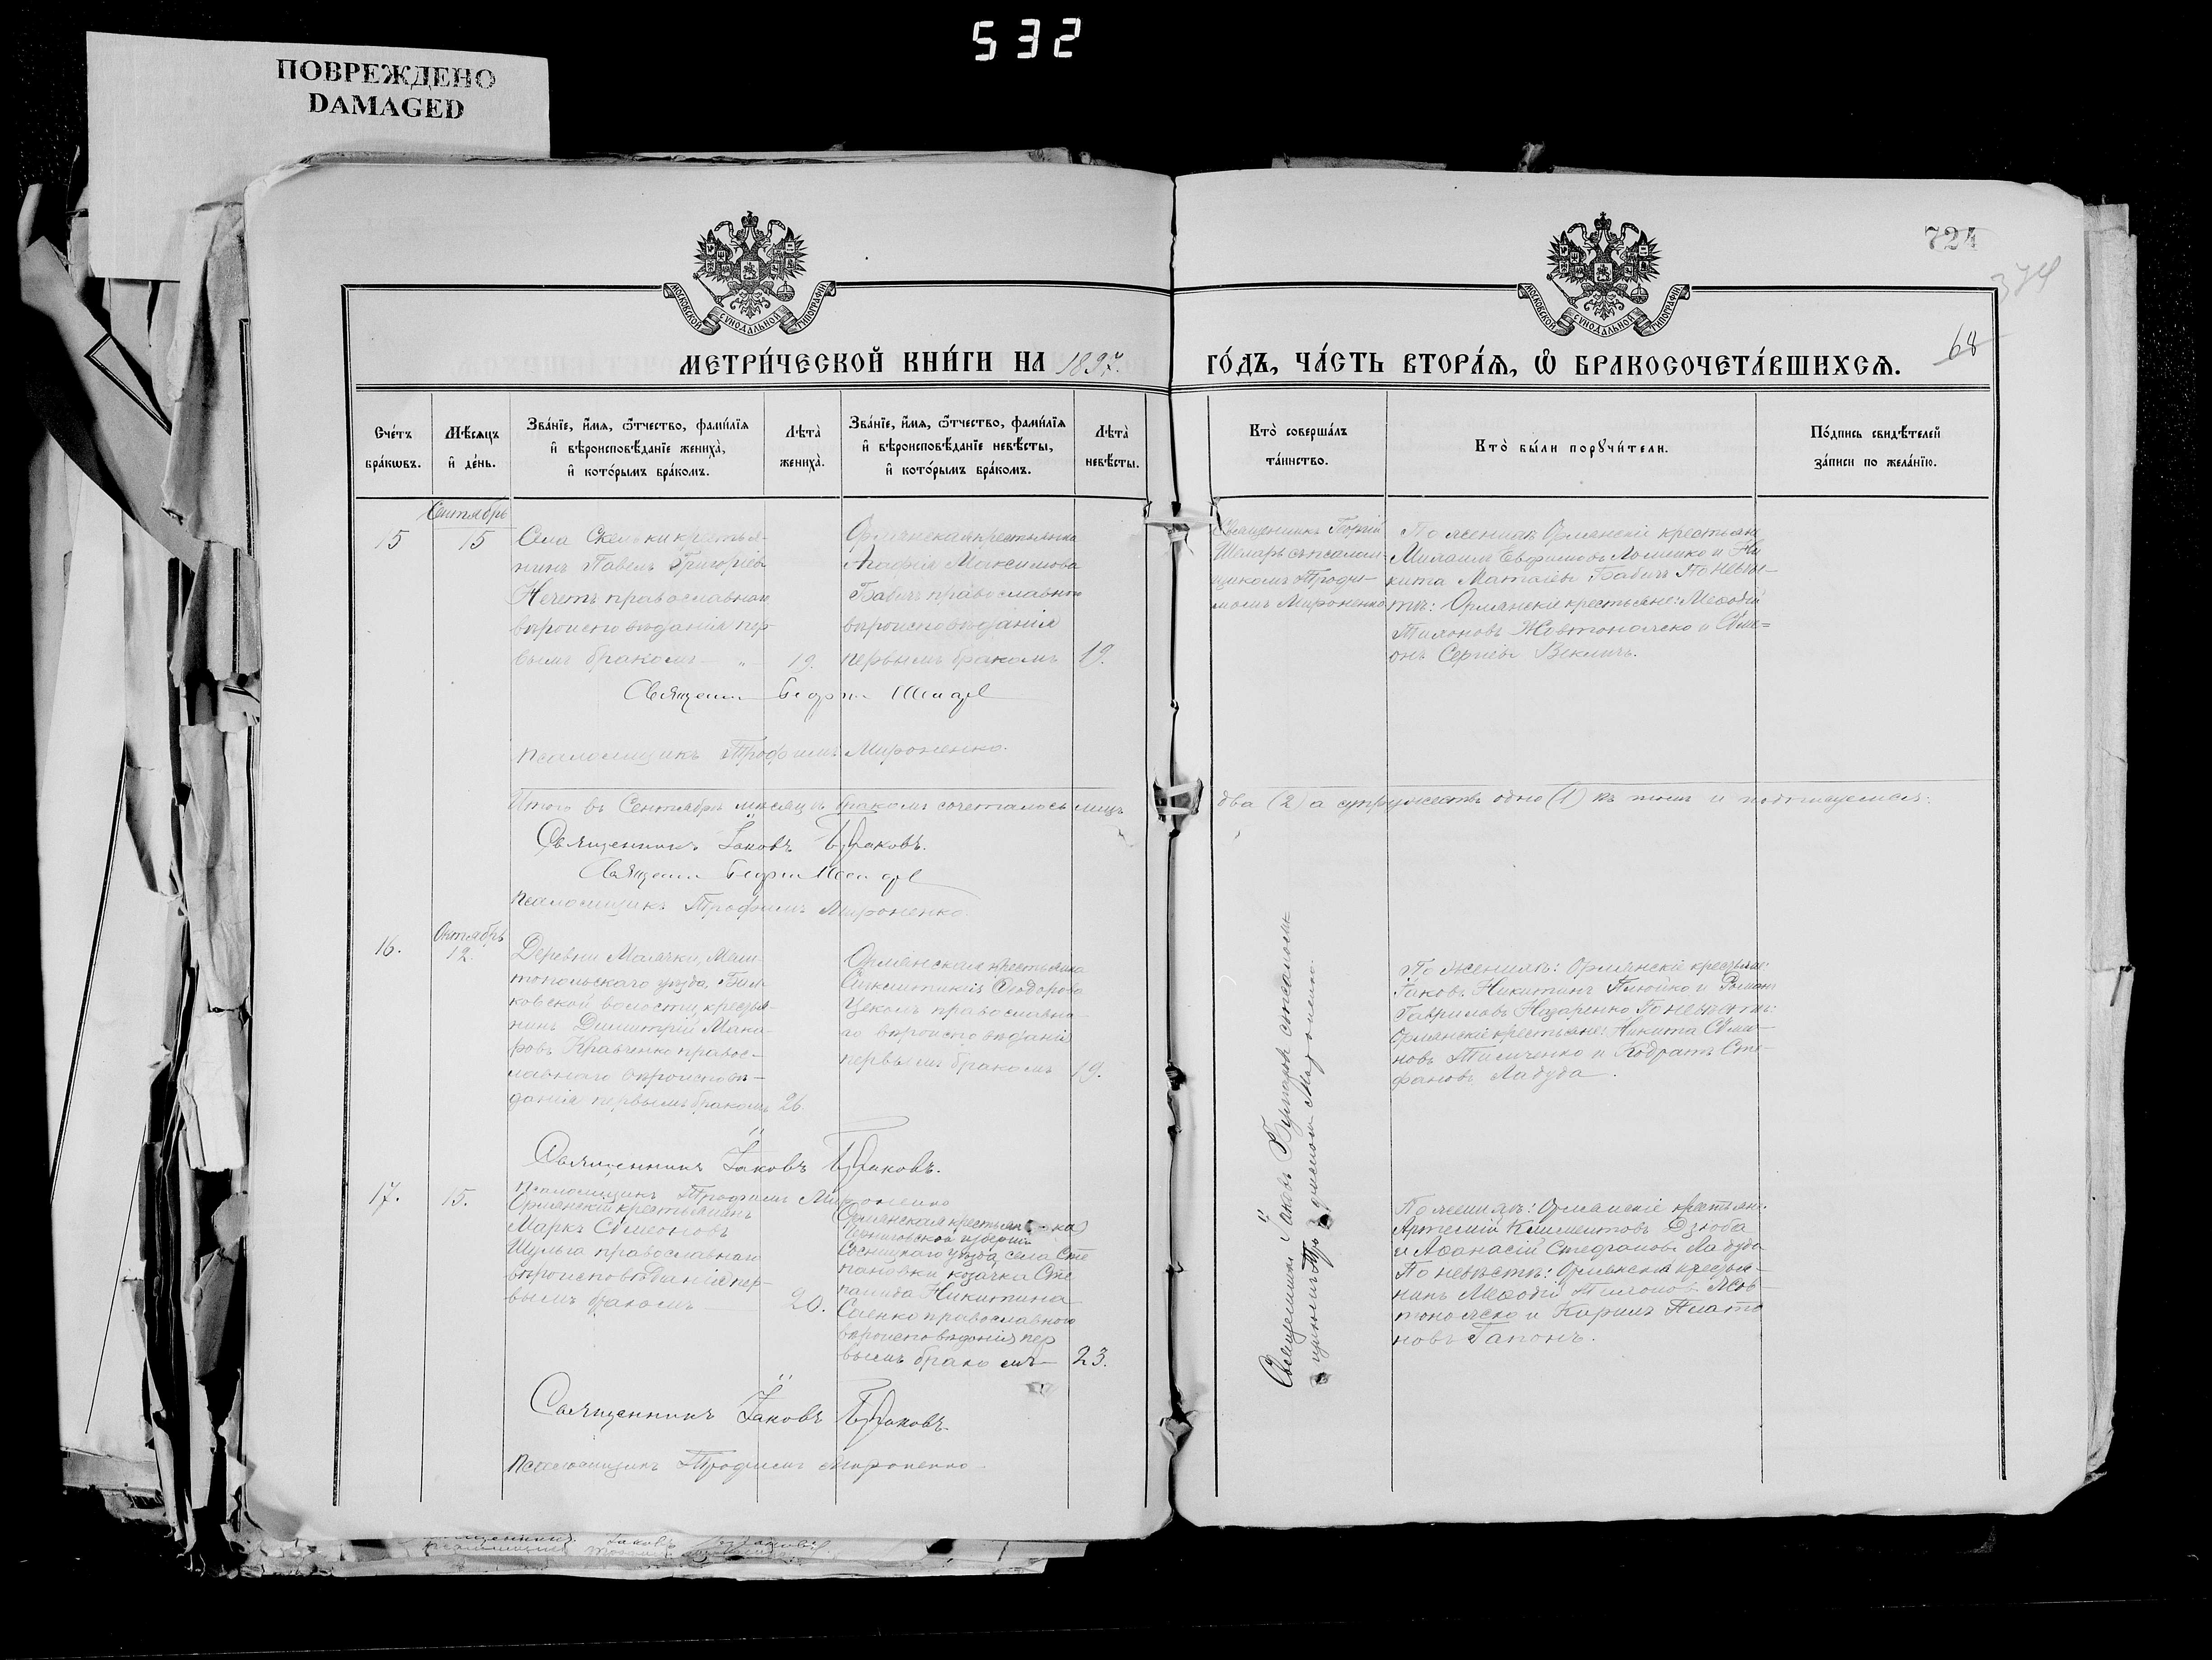 532
ПОВРЕЖДЕНО
DAMAGED
724
374
68
МОСКОВСКОЙ СѴНОДАЛЬНОЙ ТИПОГРАФІИ
МОСКОВСКОЙ СѴНОДАЛЬНОЙ ТИПОГРАФІИ
МЕТРИ́ЧЕСКОЙ КНИ́ГИ НА 1897.
ГО́ДЪ, ЧА́СТЬ ВТОРА́Ѧ, Ѽ БРАКОСОЧЕТА́ВШИХСѦ.
Сче́тъ бра́кωвъ.
Мѣ́сѧцъ и҆ де́нь.
Зва́нїе, и҆́мѧ, ѻ҆́тчество, фами́лїѧ и҆ вѣроисповѣ́данїе жениха̀, и҆ кото́рымъ бра́комъ.
Лѣ́та жениха̀.
Зва́нїе, и҆́мѧ, ѻ҆́тчество, фами́лїѧ и҆ вѣроисповѣ́данїе невѣ́сты, и҆ кото́рымъ бра́комъ.
Лѣ́та невѣ́сты.
Кто̀ соверша́лъ та́инство.
Кто̀ бы́ли порꙋчи́тели.
По́дпись свидѣ́телей за́писи по жела́нїю.
Сентябрь
15
15
Села Скельки крестья-
нинъ Павелъ Григоріевъ
Нечетъ православнаго
вѣроисповѣданія пер-
вымъ бракомъ — „ —
19.
Орлянская крестьянка
Агафія Максимова
Бабичъ православнаго
вѣроисповѣданія
первымъ бракомъ
19.
Священникъ Георгій
Шмаръ съ псалом-
щикомъ Трофи-
момъ Мироненко
По женихѣ Орлянскіе крестьяне
Михаилъ Евфимовъ Лоленко и Ни
кита Матвѣевъ Бабичъ По невѣс-
тѣ: Орлянскіе крестьяне: Меѳодій
Тихоновъ Жовтоножко и Симе-
онъ Сергіевъ Векличъ.
Священникъ Георгій
Псаломщикъ Трофимъ Мироненко.
Итого въ Сентябрѣ мѣсяцѣ бракомъ сочеталось лицъ
два (2) а супружествъ одно (1) въ томъ и подписуемся:
Священникъ Іаковъ
Священникъ Георгій
Псаломщикъ Трофимъ Мироненко.
Октябрь
16.
12.
Деревни Малячки, Мели-
топольскаго уѣзда,
волости, крестья-
нинъ Димитрій Мака-
ровъ Кравченко правос-
лавнаго вѣроисповѣ-
данія первымъ бракомъ
26.
Орлянская крестьянка
Синклитикія Ѳеодорова
православна-
го вѣроисповѣданія
первымъ бракомъ
19.
По женихѣ: Орлянскіе крестьяне:
Іаковъ Никитинъ и Романъ
Гавриловъ Назаренко По невѣстѣ:
Орлянскіе крестьяне: Никита Сѵмео-
новъ Тимченко и Кодратъ Сте-
фановъ Лабуда.
Священникъ Іаковъ
Псаломщикъ Трофимъ Мироненко
17.
15.
Орлянскій крестьянинъ
Маркъ Сѵмеоновъ
Шульга православнаго
вѣроисповѣданія пер-
вымъ бракомъ
20.
Орлянская крестьянка
Черниговской губерніи
Сосницкаго уѣзда, села Сте
пановки козачка Сте
панида Никитина
Саенко православного
вѣроисповѣданія пер
вымъ бракомъ
23.
По женихѣ: Орлянскіе крестьяне:
Артемій Климентовъ Дзюба
и Аѳанасій Стефановъ Лабуда
По невѣстѣ: Орлянскій крестья-
нинъ Меѳодій Тихоновъ Жов-
тоножко и Кирилъ Плато
новъ Гапонъ.
Священникъ Іаковъ
щикомъ Трофимомъ Мироненко.
Священникъ Іаковъ
Псаломщикъ Трофимъ Мироненко